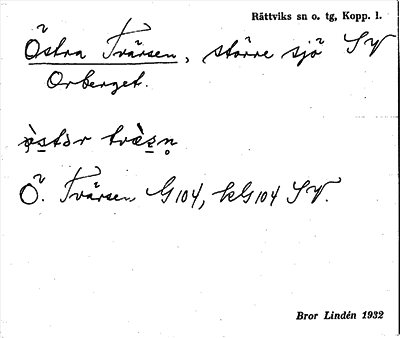 Rättviks sn o. tg, Kopp. l.
Östra Tvärsen, större sjö SV
Orberget.
Ö. Tvärsen G104, kG104 SV.
Bror Lindén 1932